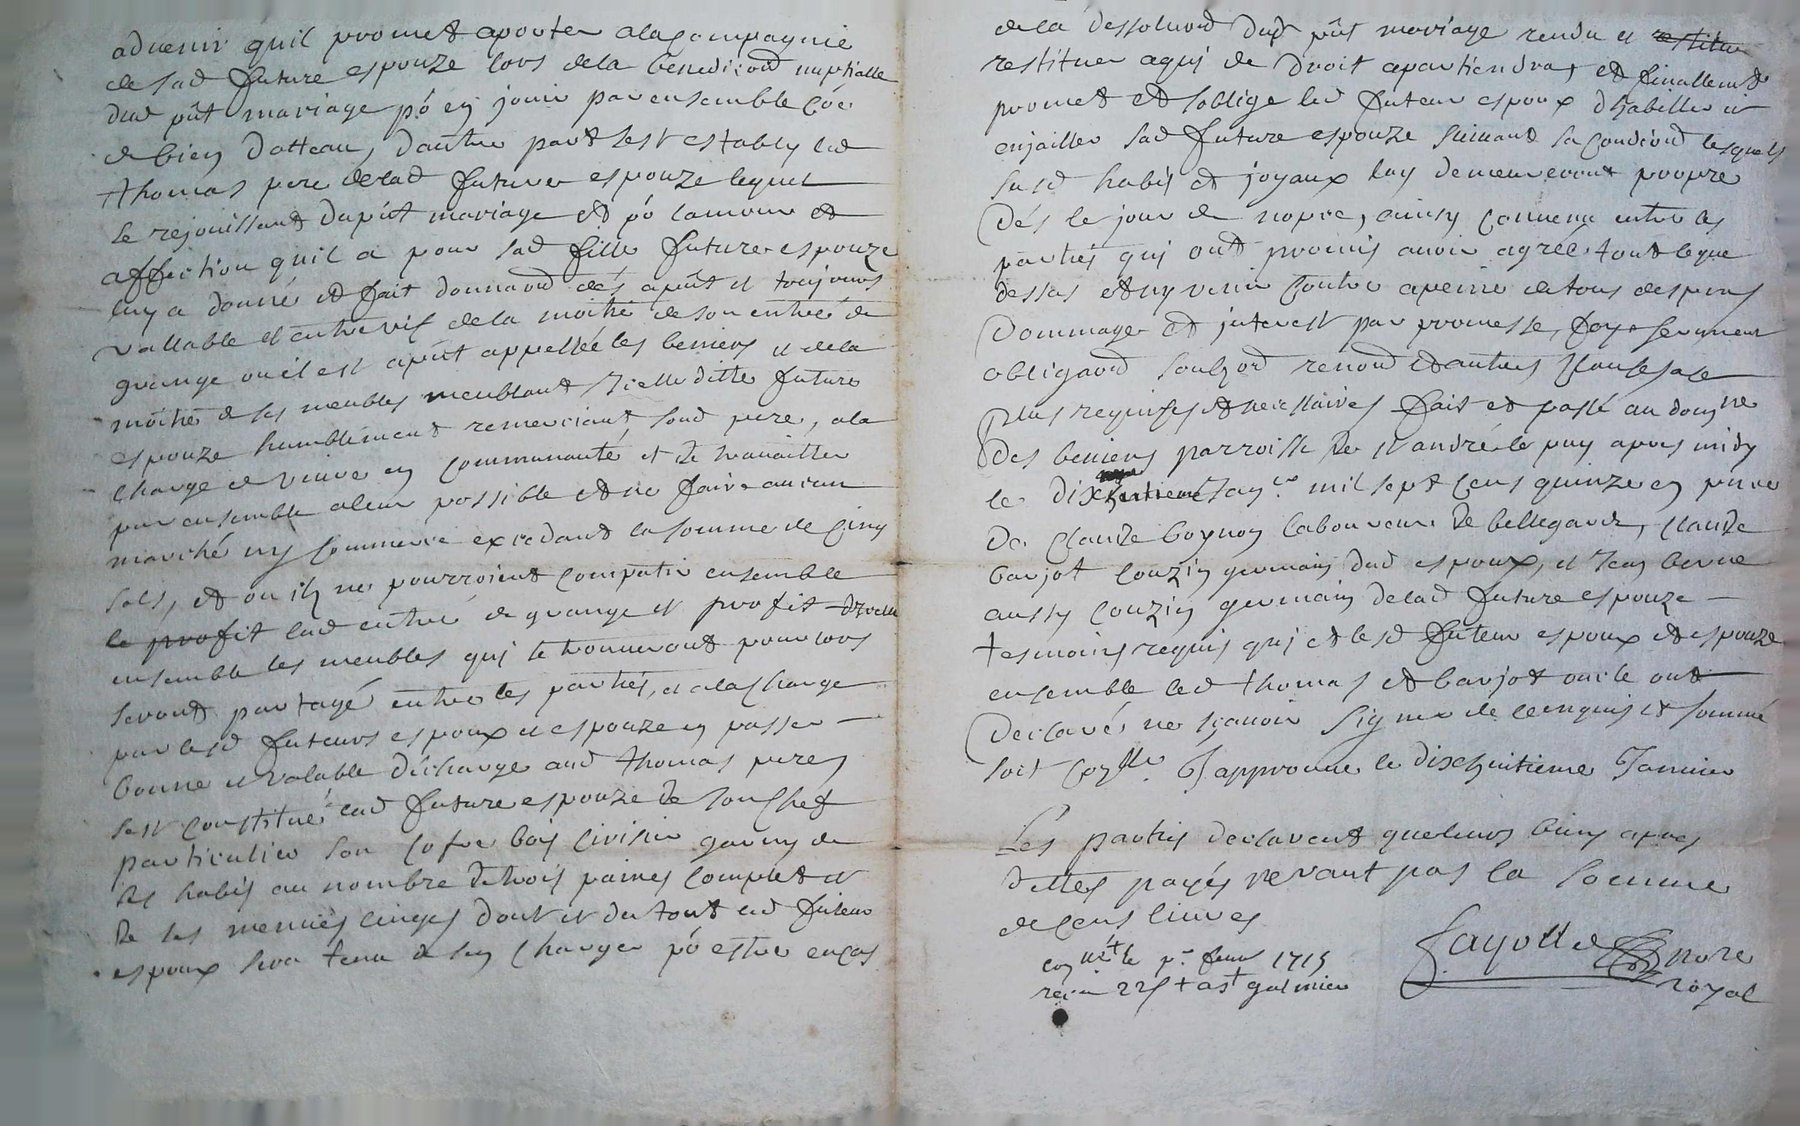 advenir quil promet aporter a la compagnie
de sad future espouze lors de la benediction nuptialle
dud pñt mariage po en jouir par ensemble coe
de bien dotteau, dautre part sest estably led
thomas pere delad future espouze lequel
se rejouissant dupñt mariage et po lamour et
affection quil a pour sad fille future espouze
luy a donné et fait donnaond dés apñt et toujours
vallable et entre vif de la moitié de son entrée de
grange ou il est apñt appellée les beniers et de la
moitié de ses meubles meublant Icelle ditte future
espouze humblement remerciant sond pere, a la
charge de vivre en communauté et de travailler
par ensemble a leur possible et ne faire aucun
marché ny commerce excedant la somme de cinq
sols, et ou ilz ne pourroient compatir ensemble
le profit lad entrée de grange et profit dicelle
ensemble les meubles qui se trouveront pour lors
seront partagé entre les parties, et a la charge
par lesd futeurs espoux et espouze en passer
bonne et valable décharge aud thomas pere,
sest constitué lad future espouze de son chef
particulier son cofre bois garny de
ses habis au nombre de trois paires complet et
de ses menues linges dont et du tout led futeur
espoux sera tenu de sen charger po estre en cas
de la dessoluond dud pñt mariage rendu et restitue
restituer a qui de droit apartiendra, et finallemt
promet et soblige led futeur espoux dhabiller et
enjailler sad future espouze suivant sa condiond lesquels
susd habis et joyaux luy demeureront propre
Dés le jour de nopce, ainsy convenu entre les
parties qui ont promis avoir agréé tout le que
dessus et ny venir contre a peine de tous despens
Dommages et interest par promesse, foy, serment
obligaond soubzon renond et autres clause
plus requises et necessaires fait et passé au domne
des beniers parroisse de st andré le puy apres midy
le dixhuitieme Janer mil sept cens quinze en pnce
de Claude boynon laboureur de bellegarde, claude
barjot couzin germain dud espoux, et Jean berne
aussy couzin germain delad future espouze
tesmoins requis qui et lesd futeur espoux et espouze
ensemble led thomas et barjot oncle ont
Declarés ne sçavoir signer de ce enquis et sommé
soit conlle Japprouve le dixhuitieme Janvier
Les parties declarent que leurs biens apres
dettes payés ne vaut pas la somme
de cens livres
conlle le pr fevr 1715
recu 22s + a st galmier
Fayolle nore
royal